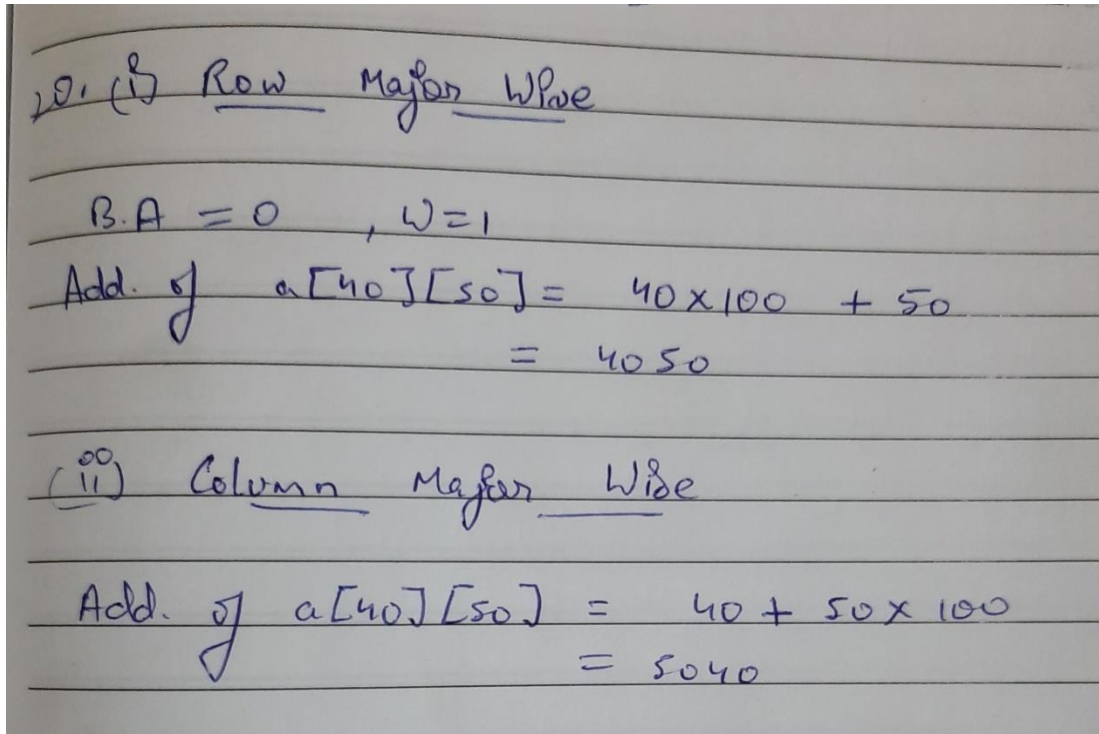 20. (i) Row Major Wise
B.A = 0 , W=1
Add. of a[40][50] = 40x100 + 50
= 4050
(ii) Column Major Wise
Add. of a[40][50] = 40 + 50 x 100
= 5040